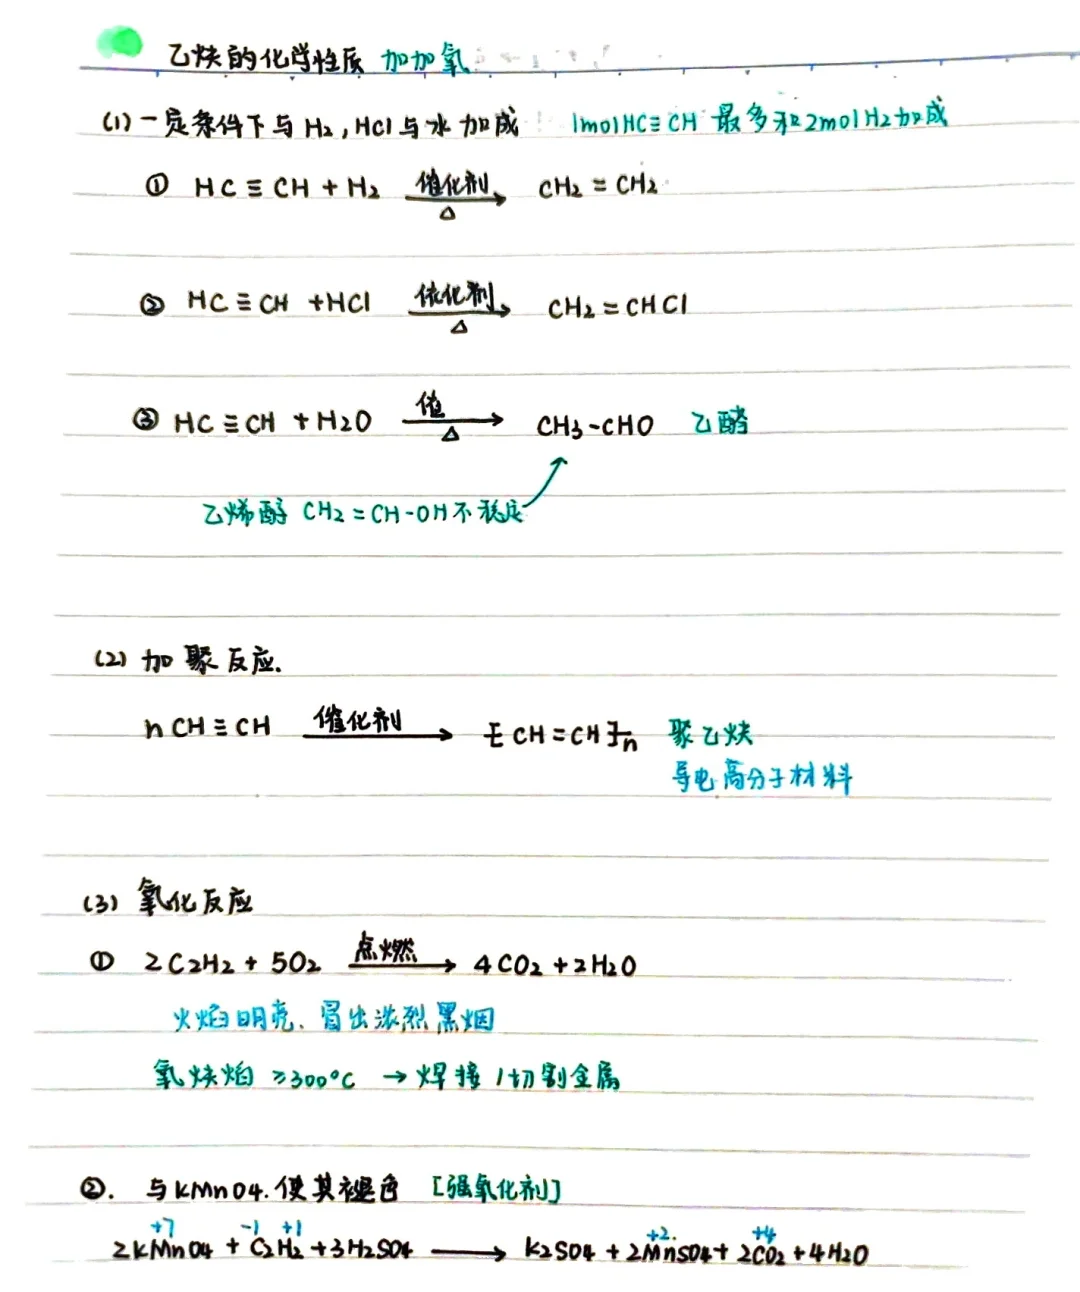 乙炔的化学性质 加加氧
(1) 一定条件下与H2,HCl与水加成 1molHC≡CH 最多和2molH2加成
① HC≡CH+H2 催化剂 △ → CH2=CH2
② HC≡CH+HCl 催化剂 △ → CH2=CHCl
③ HC≡CH+H2O 催 △ → CH3-CHO 乙醛
乙烯醇 CH2=CH-OH不稳定
(2) 加聚反应.
nCH≡CH 催化剂 → [CH=CH]n 聚乙炔
导电高分子材料
(3) 氧化反应
① 2C2H2+5O2 点燃 → 4CO2+2H2O
火焰明亮、冒出浓烈黑烟
氧炔焰 ≥300°C → 焊接/切割金属
②. 与KMnO4.使其褪色 [强氧化剂]
+7 -1 +1 +2 +4
2KMnO4+C2H2+3H2SO4 → K2SO4+2MnSO4+2CO2+4H2O